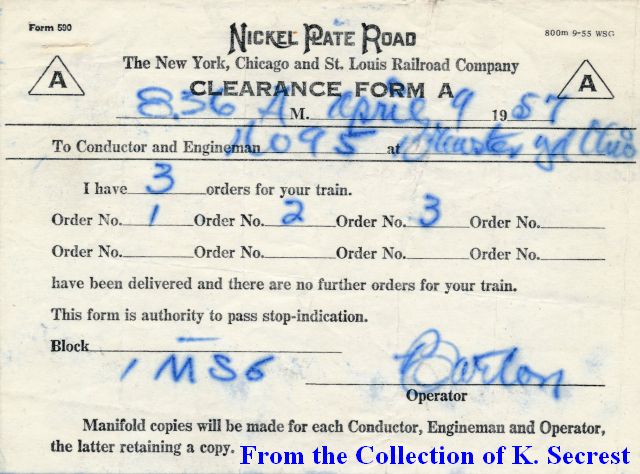 Form 590
NICKEL PLATE ROAD
800m 9-55 WSG
The New York, Chicago and St. Louis Railroad Company
A CLEARANCE FORM A A
8:36 A M. April 9 1957
To Conductor and Engineman 095 at Brewster yd Ohio
I have 3 orders for your train.
Order No. 1 Order No. 2 Order No. 3 Order No.
Order No. Order No. Order No. Order No.
have been delivered and there are no further orders for your train.
This form is authority to pass stop-indication.
Block
1 MSG
Barton
Operator
Manifold copies will be made for each Conductor, Engineman and Operator,
the latter retaining a copy.
From the Collection of K. Secrest